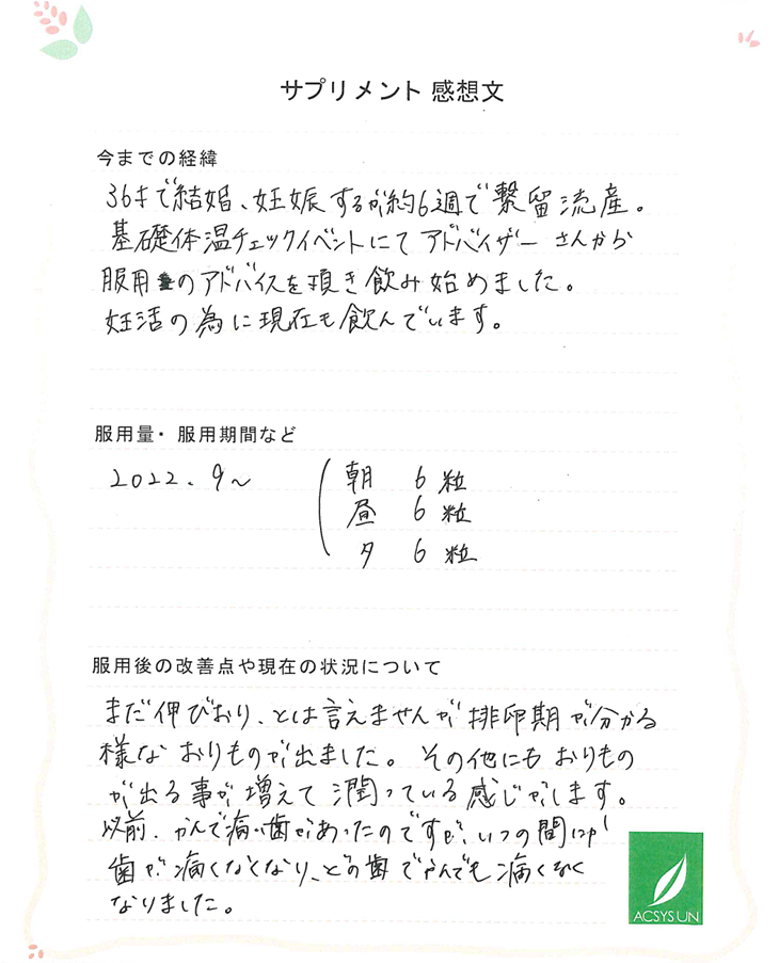 サプリメント 感想文
今までの経緯
36才で結婚、妊娠するが約6週で繋留流産。
基礎体温チェックイベントにてアドバイザーさんから
服用量のアドバイスを頂き飲み始めました。
妊活の為に現在も飲んでいます。
服用量・服用期間など
2022.9~
朝 6粒
昼 6粒
夕 6粒
服用後の改善点や現在の状況について
まだ伸びおり、とは言えませんが排卵期が分かる
様なおりものが出ました。その他にもおりもの
が出る事が増えて潤っている感じがします。
以前、かんで痛い歯があったのですが、いつの間にか
歯が痛くなくなり、どの歯でかんでも痛くなく
なりました。
ACSYS UN